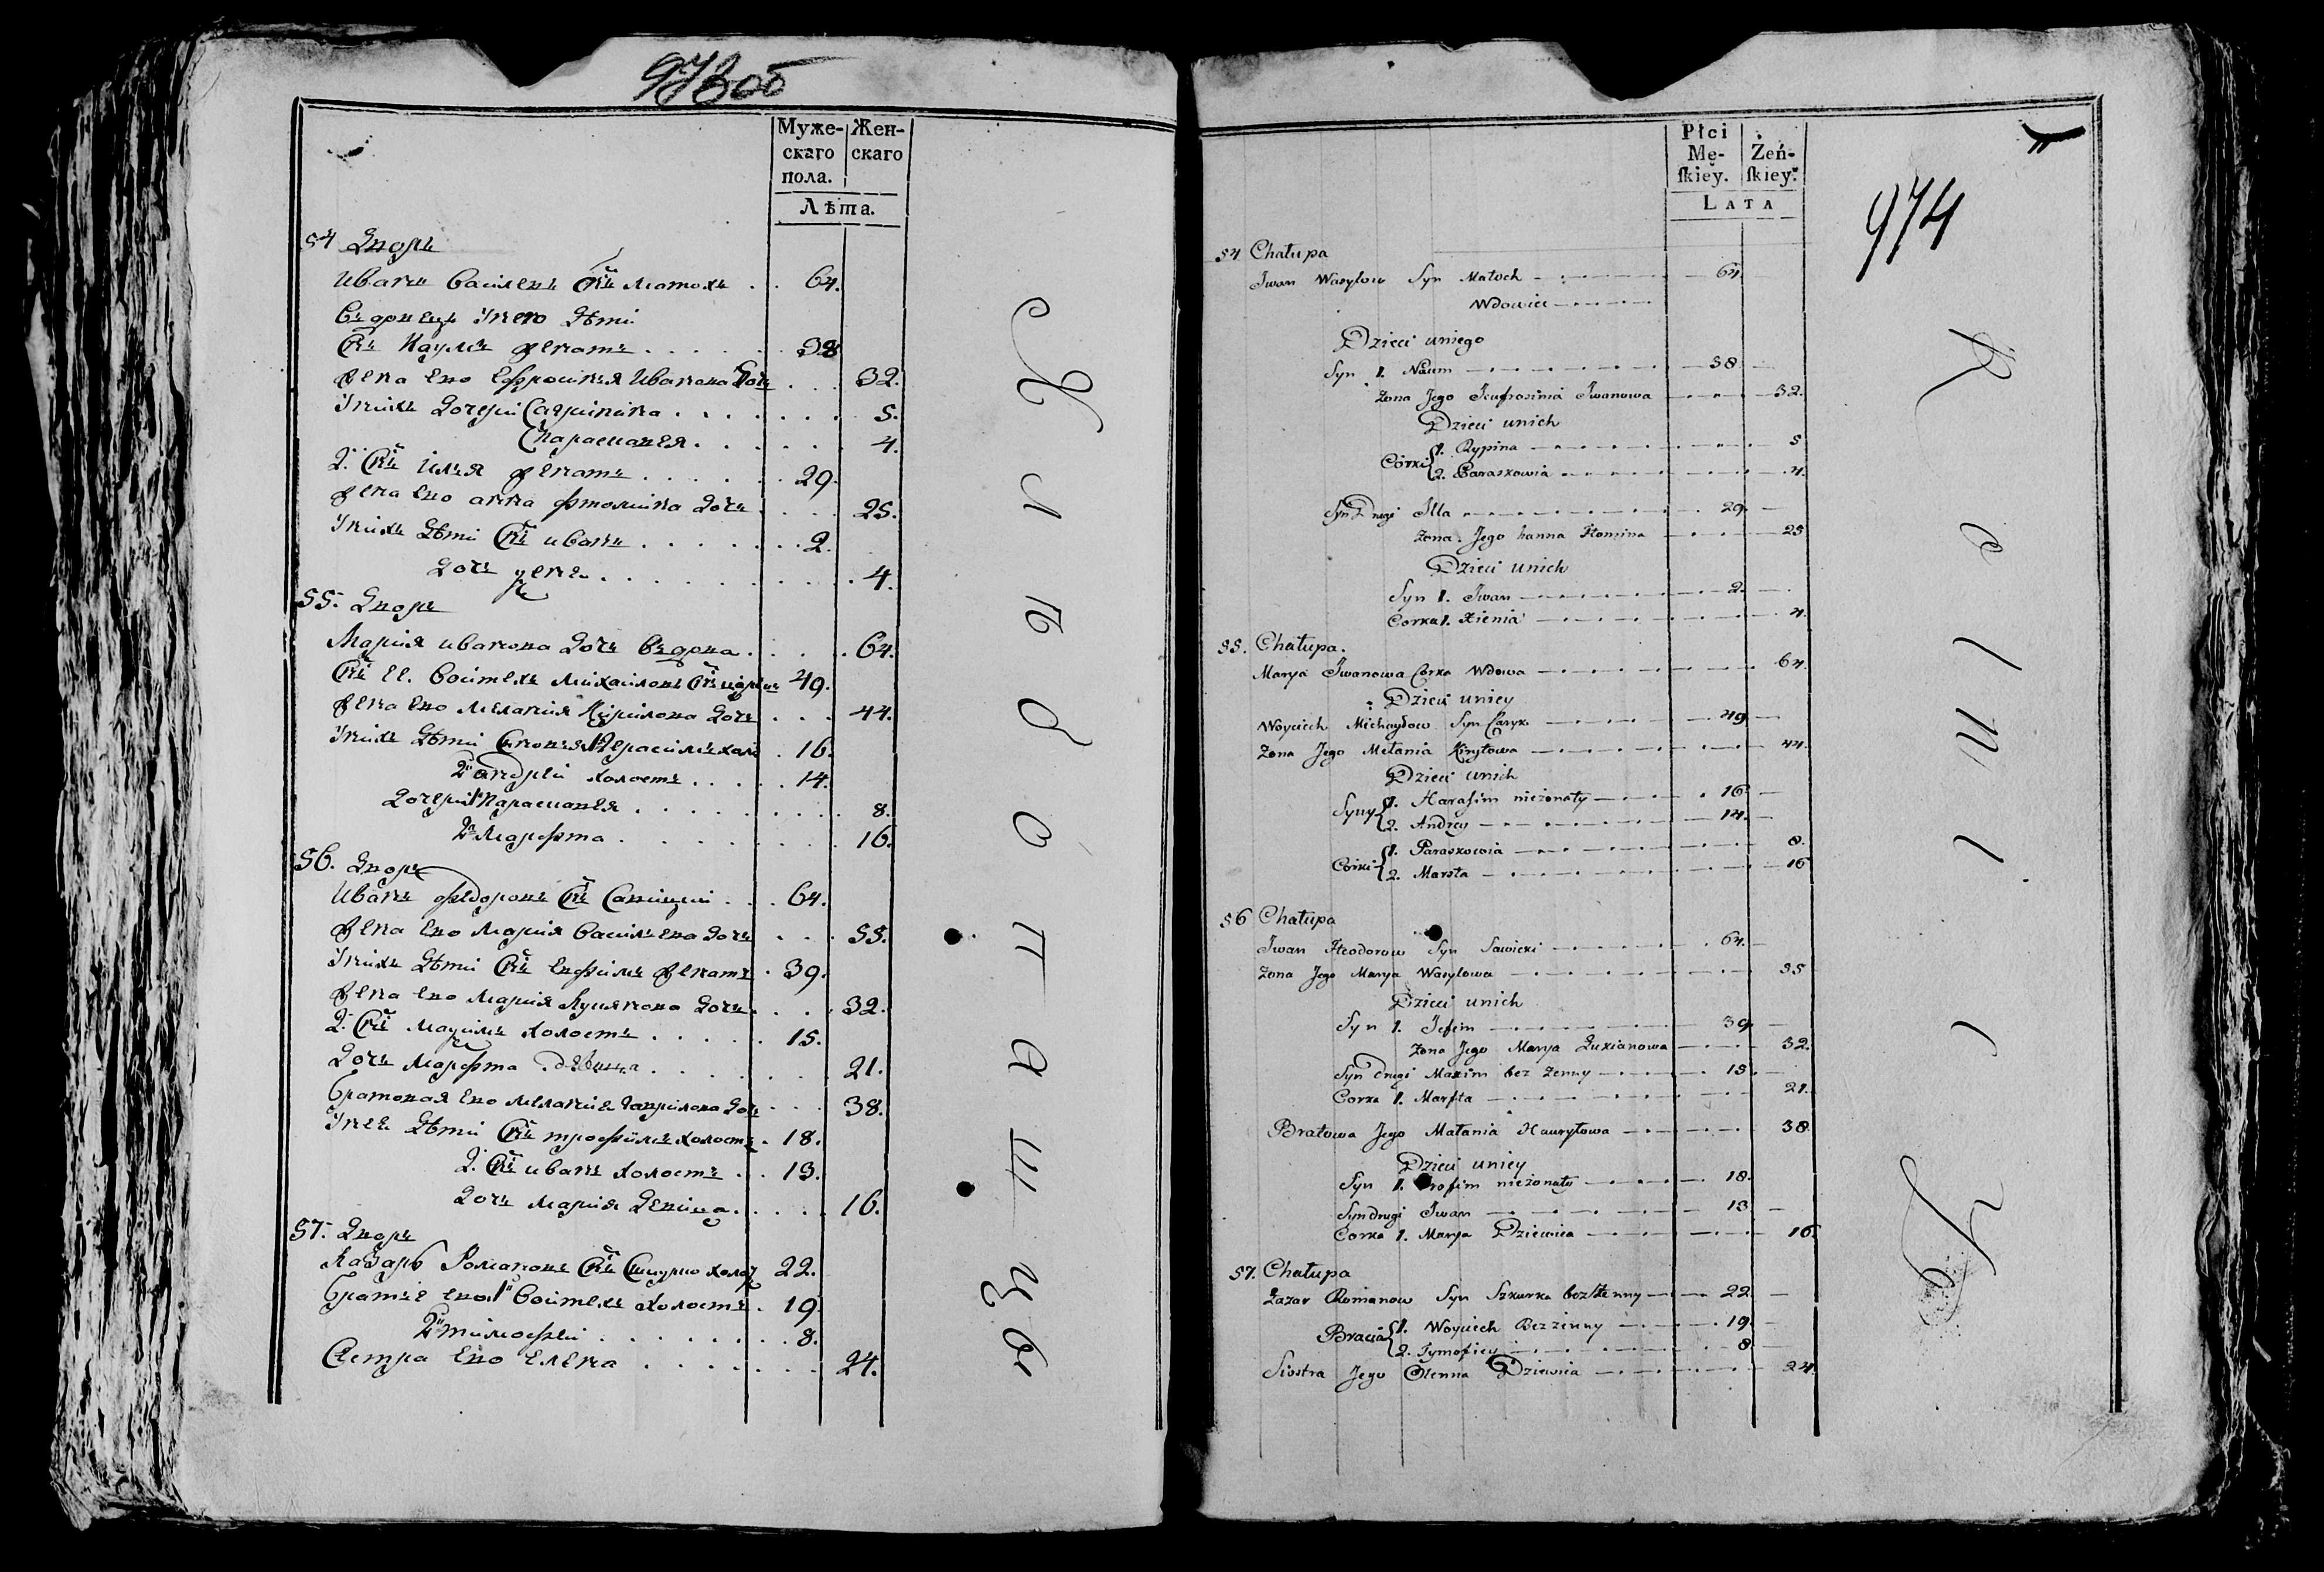 973 об
Муже-
скаго
пола.
Жен-
скаго
Лѣта.
54 Дворъ
Иванъ Василевъ Снъ Матохъ 64.
Вдовецъ У него Дѣти
Снъ Наумъ женатъ 38
жена ево Ефросиния Иванова Дочь 32.
У нихъ Дочери 5.
Парасковея 4.
2. Снъ Илья женатъ 29.
жена ево анна фтомина Дочь 25.
У нихъ Дѣти Снъ иванъ 2.
Дочь 4.
55. Дворъ
Мария иванова Дочь Вдова 64.
Снъ ее Воитехъ Михаиловъ Снъ 49.
жена ево Мелания Кирилова Дочь 44.
У нихъ Дѣти Герасимъ 16.
2й андрей холостъ 14.
Дочери Парасковея 8.
2я Марфта 16.
56. Дворъ
Иванъ федоровъ Снъ Савицки 64.
жена ево Мария Василева Дочь 55.
У нихъ Дѣти Снъ Ефимъ женатъ 39.
жена ево Мария Лукянова Дочь 32.
2. Снъ Мацимъ холостъ 15.
Дочь Марфта девица 21.
Братовая ево мелания гаврилова Дочь 38.
У нее Дѣти Снъ трофимъ холостъ 18.
2. Снъ иванъ холостъ 13.
Дочь мария Девица 16.
57. Дворъ
Лазарь Романовъ Снъ Шкурко холос 22.
Братъе ево 1й Воитехъ холостъ 19.
2й тимофеи 8.
Сестра ево елена 24.
974
Płci
Mę-
ſkiey.
Żeń-
ſkiey.
LATA
54 Chałupa
Jwan Wasylow Syn Matoch 64
Wdowiec
Dzieci uniego
Syn 1. Naum 38
Zona Jego Jeufrosinia Jwanowa 32.
Dzieci unich
Córki 1. Rypina 5
2. Paraskowia 4.
Syn Drugi Illa 29.
Zona Jego hanna Ftomina 25
Dzieci unich
Syn 1. Jwan 2.
Corka 1. Xienia 4.
55. Chałupa.
Marya Jwanowa Corka Wdowa 64.
Dzieci uniey
Woyciech Michayłow Syn Caryk 49
Zona Jego Mełania Kiryłowa 44.
Dzieci unich
Syny 1. Haraſim nieżonaty 16
2. Andrey 14.
Córki 1. Paraskowia 8.
2. Marsta 16
56 Chałupa
Jwan Fteodorow Syn Sawicki 64.
Zona Jego Marya Wasylowa 55
Dzieci unich
Syn 1. Jefim 39
Zona Jego Marya Łukianowa 32.
Syn drugi Maxim bez Zenny 15.
Corka 1. Marfta 21.
Bratowa Jego Małania Hauryłowa 38.
Dzieci uniey
Syn 1. Trofim nieżonaty 18.
Syn drugi Jwan 13
Corka 1. Marya Dziewica 16.
57. Chałupa
Łazar Romanow Syn Szkurka bez Zenny 22
Bracia 1. Woyciech Bezzenny 19.
2. Tymofiey 8
Siostra Jego Olenna Dziewica 24.